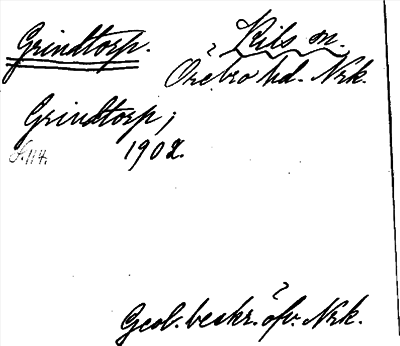 Grindtorp. Kils sn.
Örebro hd. Nrk.
Grindtorp;
S. 114. 1902.
Geol. beskr. öfv. Nrk.